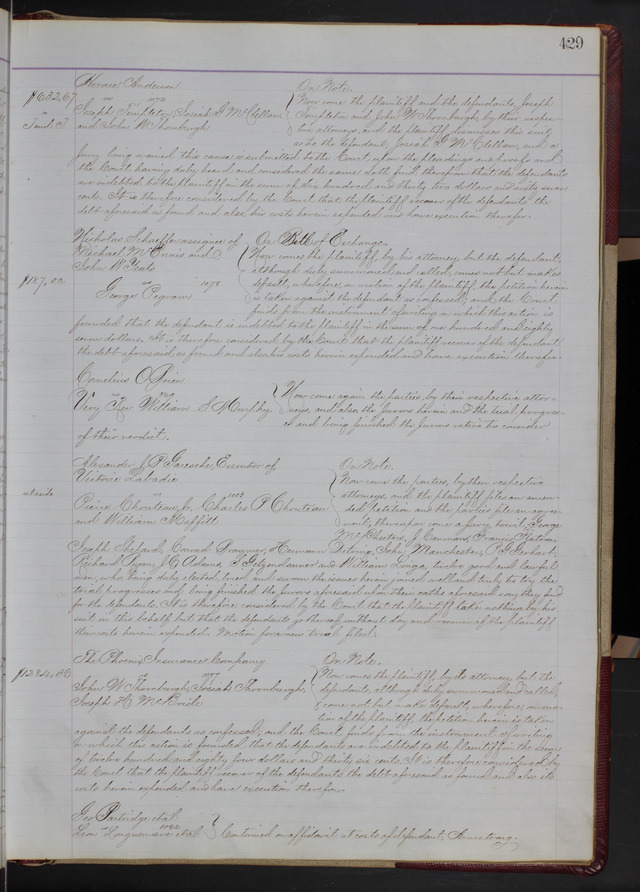 429
Horace Anderson
On Note.
$632.67
vs 1070
Joseph Templeton, Josiah G McClellan
and John W Thornburgh
Now come the plaintiff and the defendants, Joseph
Templeton and John W Thornburgh, by their respec-
tive attorneys, and the plaintiff dismisses this suit
as to the defendant, Josiah G McClellan, and a
jury being waived this cause is submitted to the Court upon the pleadings and proofs and
the Court having duly heard and considered the same doth find therefrom that the defendants
are indebted to the plaintiff in the sum of six hundred and thirty two dollars and sixty seven
cents. It is therefore considered by the Court that the plaintiff recover of the defendants the
debt aforesaid as found and also his costs herein expended and have execution therefor.
Nicholas Schaeffer assignee of
Michael McEnnis and
John W
On Bill of Exchange.
$187.00
vs 1078
George Pegram
Now comes the plaintiff, by his attorney but the defendant,
although duly summoned and called, comes not but makes
default, wherefore, on motion of the plaintiff, the petition herein
is taken against the defendant as confessed, and the Court
finds from the instrument of writing on which this action is
founded that the defendant is indebted to the plaintiff in the sum of one hundred and eighty
seven dollars. It is therefore considered by the Court that the plaintiff recover of the defendant
the debt aforesaid as found and also his costs herein expended and have execution therefor.
Cornelius O'Brien
vs
Very Rev William S Murphy.
Now come again the parties, by their respective attor-
neys, and also the Jurors herein and the trial progres-
ses and being finished the Jurors retire to consider
of their verdict.
Alexander J P Garesche, Executor of
Victoire Labadie
On Note.
vs 1003
Pierre Chouteau, Jr. Charles P Chouteau
and William Maffitt
Now come the parties, by their respective
attorneys, and the plaintiff files an amen-
ded petition and the parties file an agree-
ment, thereupon come a jury, to wit, George
McCheeters, J Cannavan, Francis
Joseph Shepard, Conrad Hermann John Manchester,
Richard Ryan, J C Adams, and William twelve good and lawful
men, who being duly elected, tried and sworn the issues herein joined well and truly to try, the
trial progresses and being finished the Jurors aforesaid upon their oaths aforesaid say they find
for the defendants. It is therefore considered by the Court that the plaintiff take nothing by his
suit in this behalf but that the defendants go thereof without day and recover of the plaintiff
their costs herein expended. Motion for a new trial filed.
The Phoenix Insurance Company
On Note.
$1284.36
vs
John W Thornburgh, Josiah Thornburgh,
Joseph H McBride
Now comes the plaintiff, by its attorney, but the
defendants, although duly summoned and called,
come not but make default, wherefore, on mo-
tion of the plaintiff, the petition herein is taken
against the defendants as confessed; and the Court finds from the instrument of writing
on which this action is founded that the defendants are indebted to the plaintiff in the sum
of twelve hundred and eighty four dollars and thirty six cents. It is therefore considered by
the Court that the plaintiff recover of the defendants the debt aforesaid as found and also its
costs herein expended and have execution therefor.
Geo Partridge et al.
vs 1022
Leon Longuemare et al.
Continued on affidavit at costs of defendant, Armstrong.